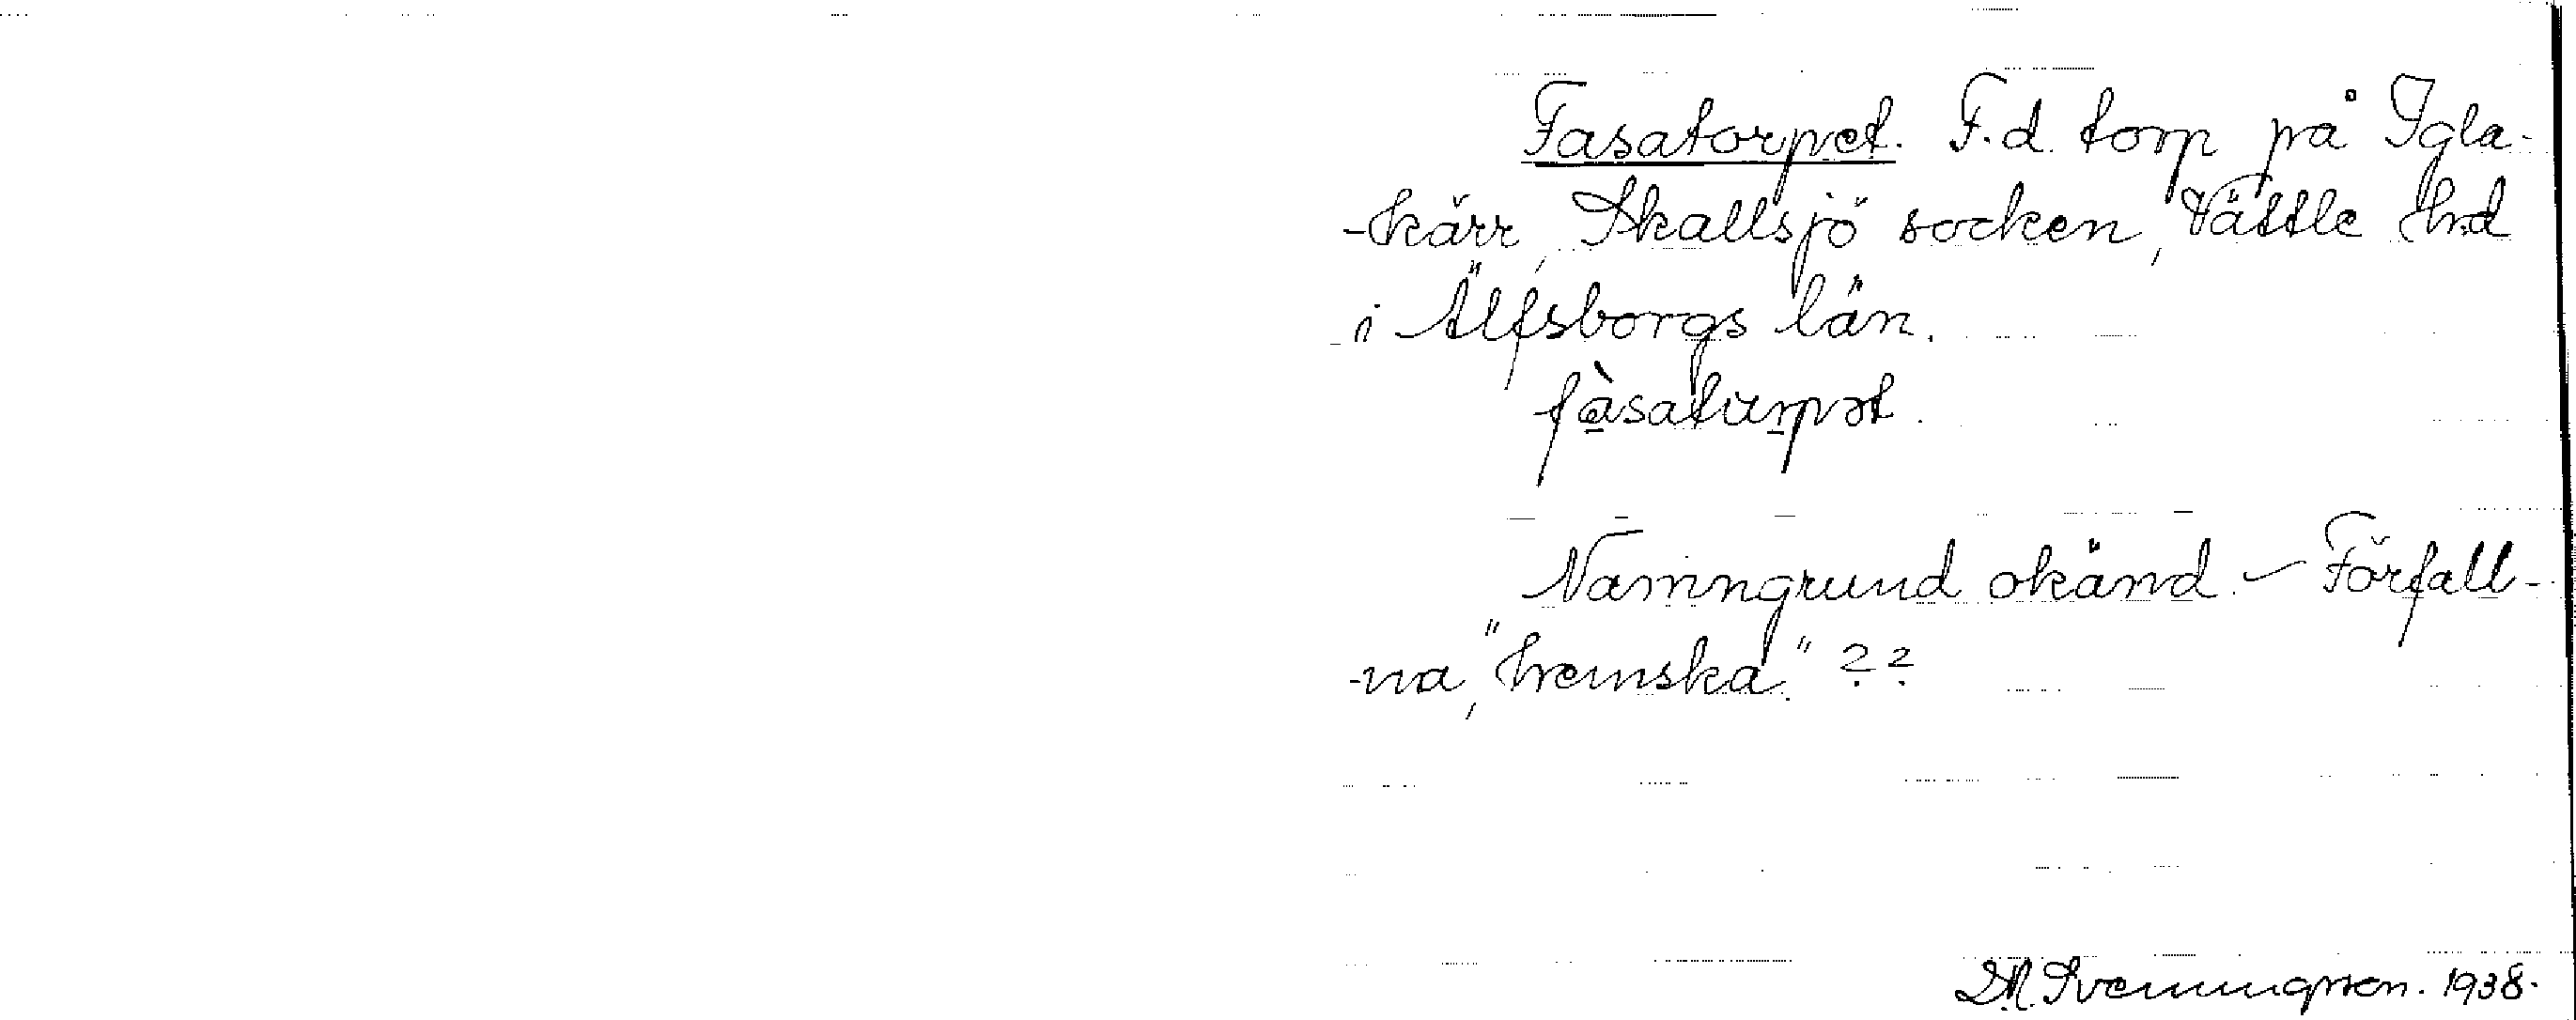 Fasatorpet. F.d. torp på Igla-
-kärr, Skallsjö socken, Vättle hd
i Älfsborgs län.
fàsaturpət.
Namngrund okänd. – Förfall-
-na, "hemska." ??
Svenningsson. 1938.